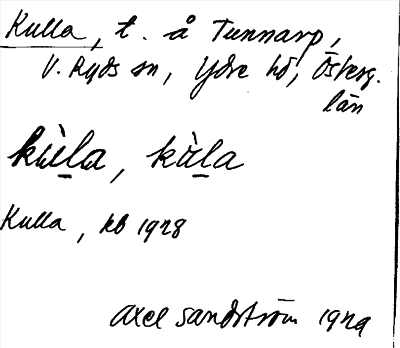 Kulla, t. å Tunnarp,
V. Ryds sn, Ydre hd, Österg.
län
kùla, kùla
Kulla, kb 1928
Axel Sandström 1929